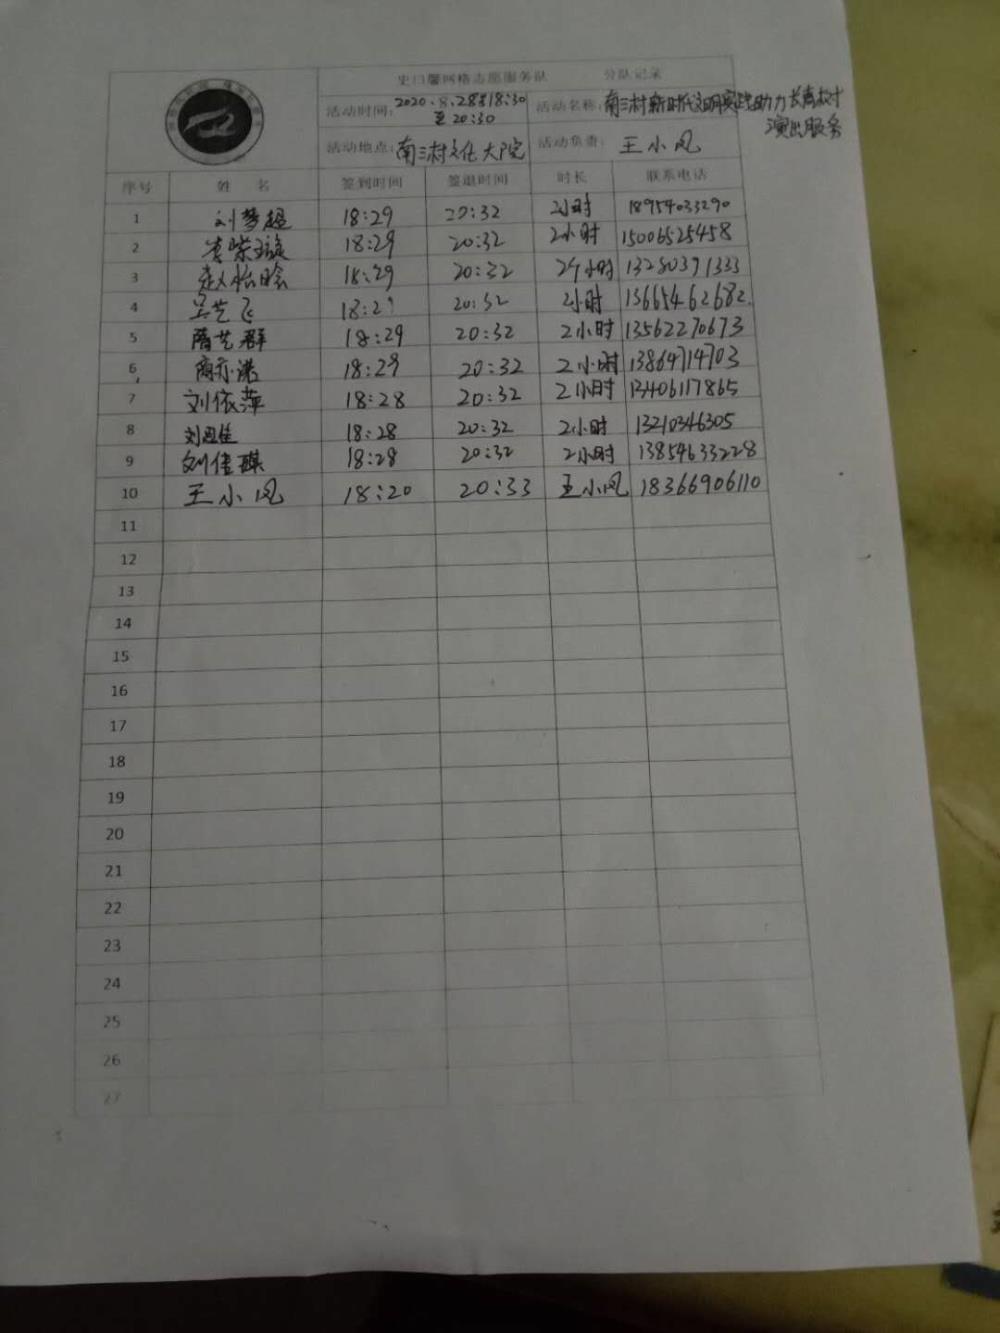 史口馨网格志愿服务队 分队记录
活动时间: 2020.8.28日18:30 至20:30 活动名称: 南三村新时代文明实践助力长青树演出服务
活动地点: 南三村文化大院 活动负责: 王小凤
序号 姓 名 签到时间 签退时间 时长 联系电话
1 刘梦超 18:29 20:32 2小时 18954033290
2 李紫璇 18:29 20:32 2小时 15006525458
3 赵怡晗 18:29 20:32 2个小时 13280391333
4 吴艺飞 18:29 20:32 2小时 13665462682
5 隋艺群 18:29 20:32 2小时 13562270673
6 商亦诺 18:29 20:32 2小时 13864714703
7 刘依萍 18:28 20:32 2小时 13406117865
8 刘恩佳 18:28 20:32 2小时 13210346305
9 刘佳琪 18:28 20:32 2小时 13854633228
10 王小凤 18:20 20:33 王小凤 18366906110
11
12
13
14
15
16
17
18
19
20
21
22
23
24
25
26
27